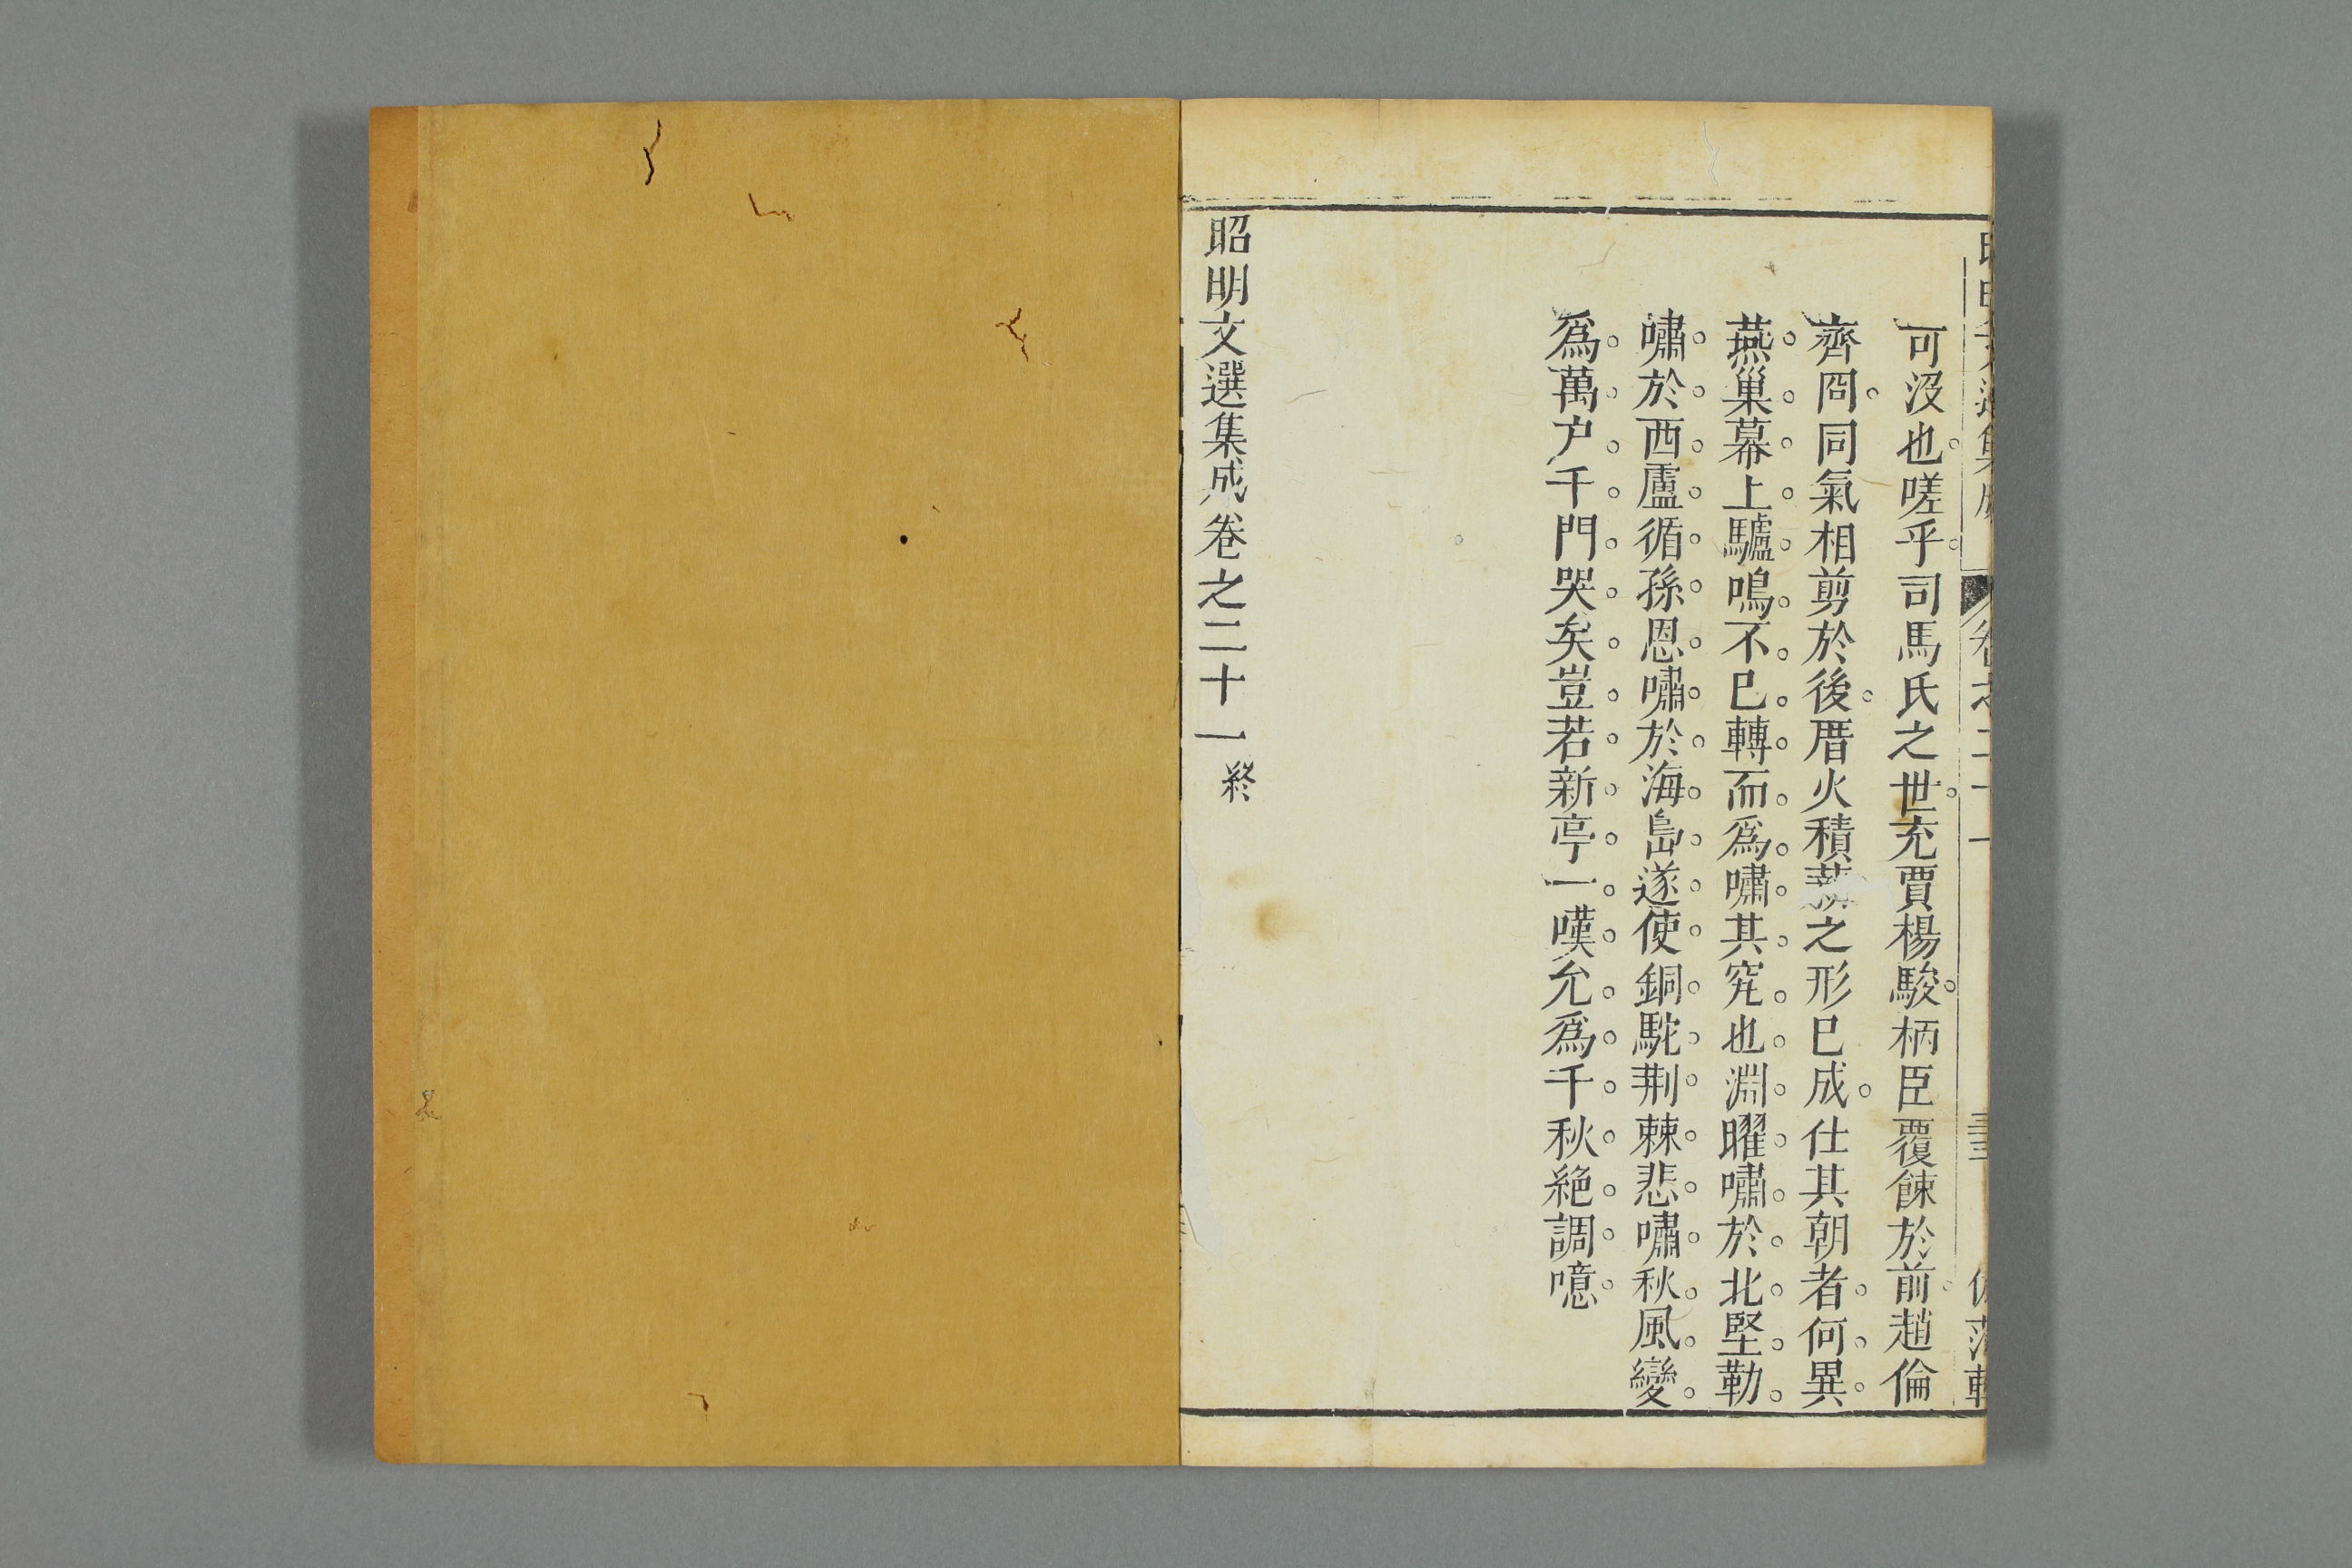 可沒也嗟乎司馬氏之世充賈楊駿柄臣覆餗於前趙倫
齊冏同氣相剪於後厝火積薪之形已成仕其朝者何異
燕巢幕上驢鳴不已轉而爲嘯其究也淵曜嘯於北堅勒
嘯於西盧循孫恩嘯於海島遂使銅駝荆棘悲嘯秋風變
爲萬户千門哭矣豈若新亭一嘆允爲千秋絶調噫
昭明文選集成卷之二十一終